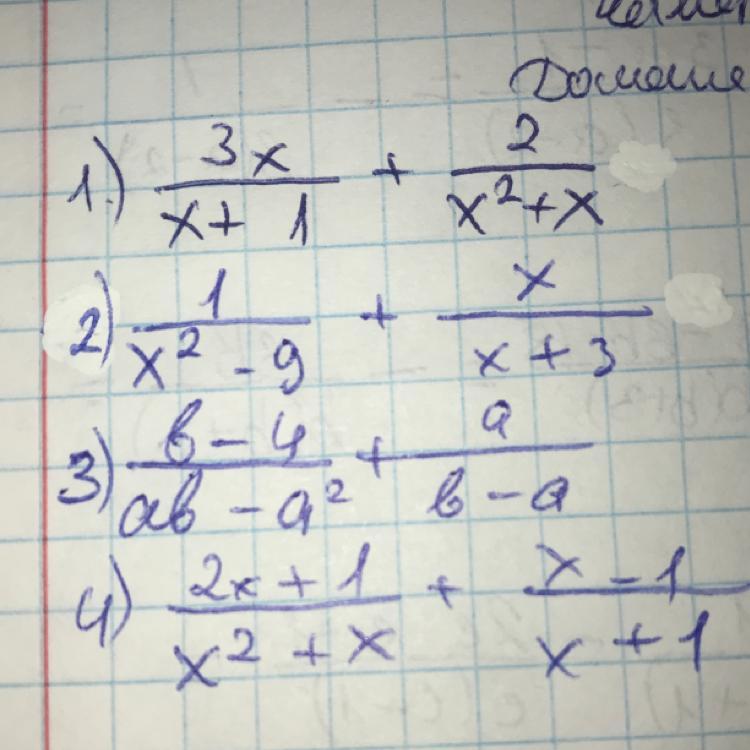 Домашн
1.) 3x/(x + 1) + 2/(x² + x)
2) 1/(x² - 9) + x/(x + 3)
3) (b - 4)/(ab - a²) + a/(b - a)
4) (2x + 1)/(x² + x) + (x - 1)/(x + 1)